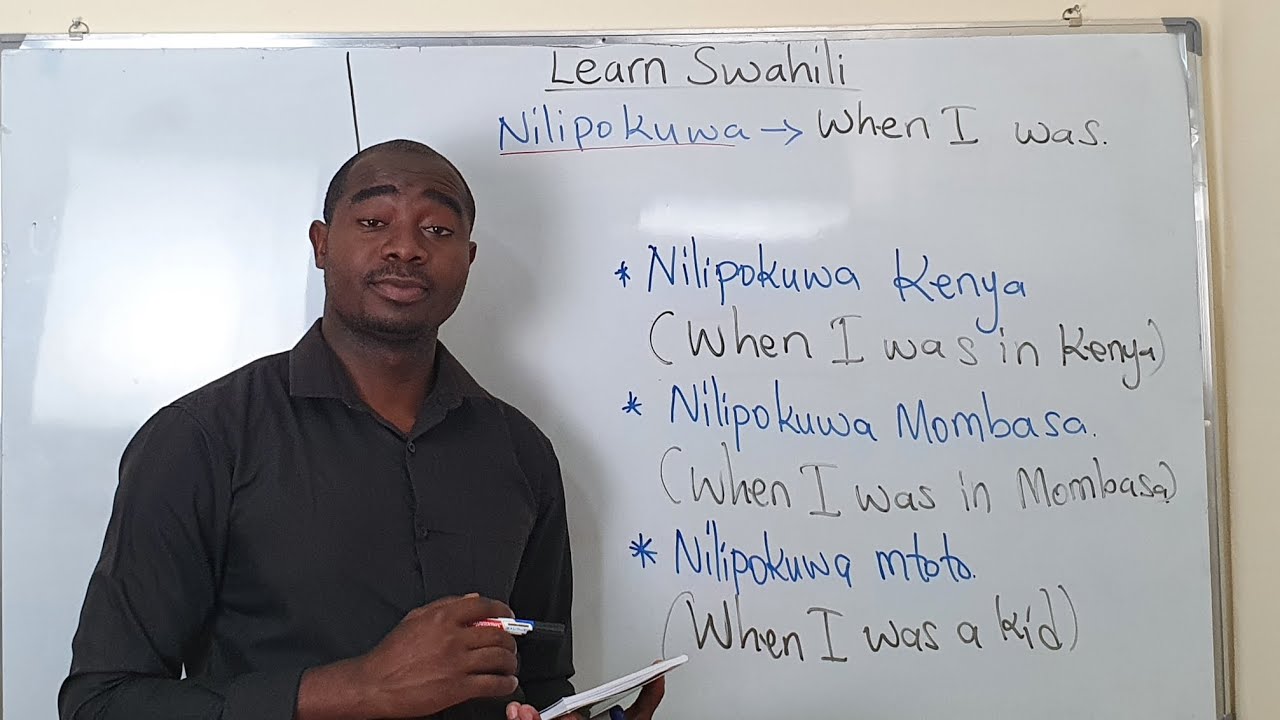 Learn Swahili
Nilipokuwa → When I was.
* Nilipokuwa Kenya
(When I was in Kenya)
* Nilipokuwa Mombasa.
(When I was in Mombasa)
* Nilipokuwa mtoto.
(When I was a kid)